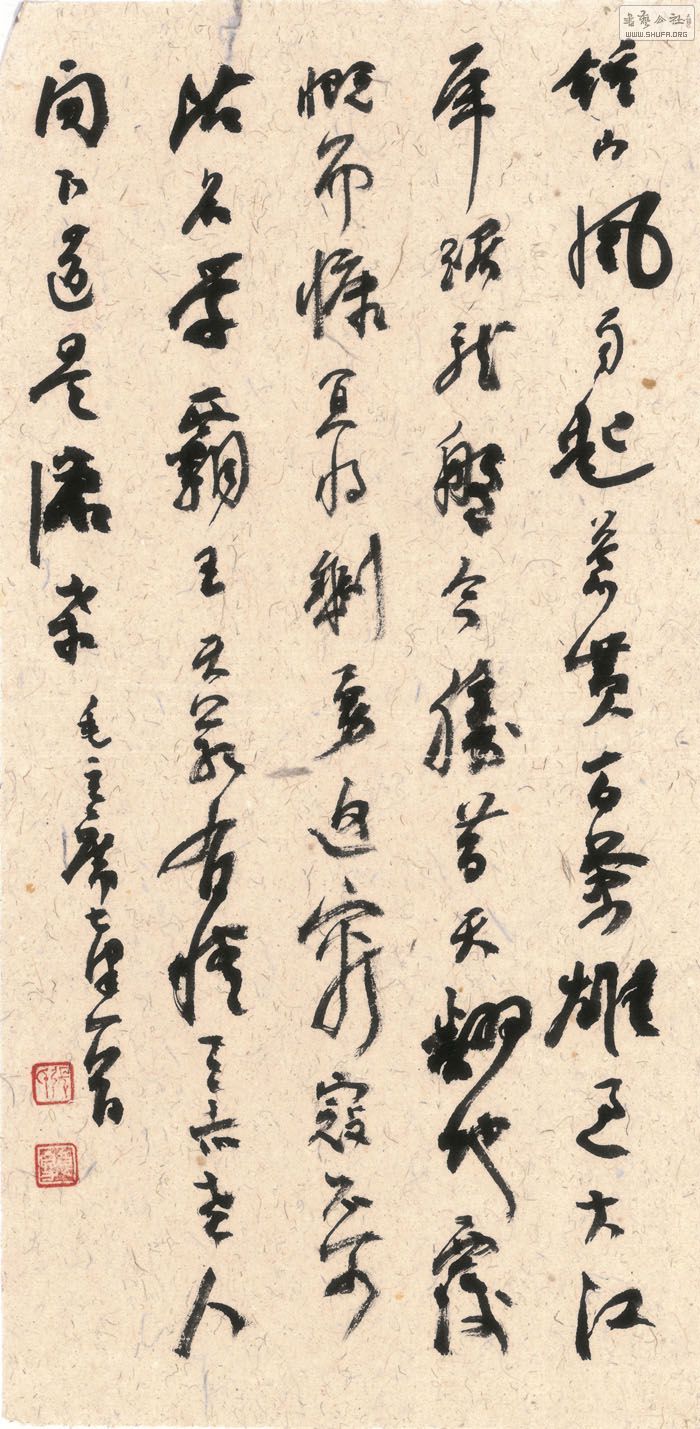 鍾山風雨起蒼黃百萬雄過大江
虎踞龙盤今勝昔天翻地覆
慨而慷宜将剩勇追窮寇不可
沽名学霸王天若有情天亦老人
间正道是滄桑
毛主席七律一首
WWW.SHUFA.ORG